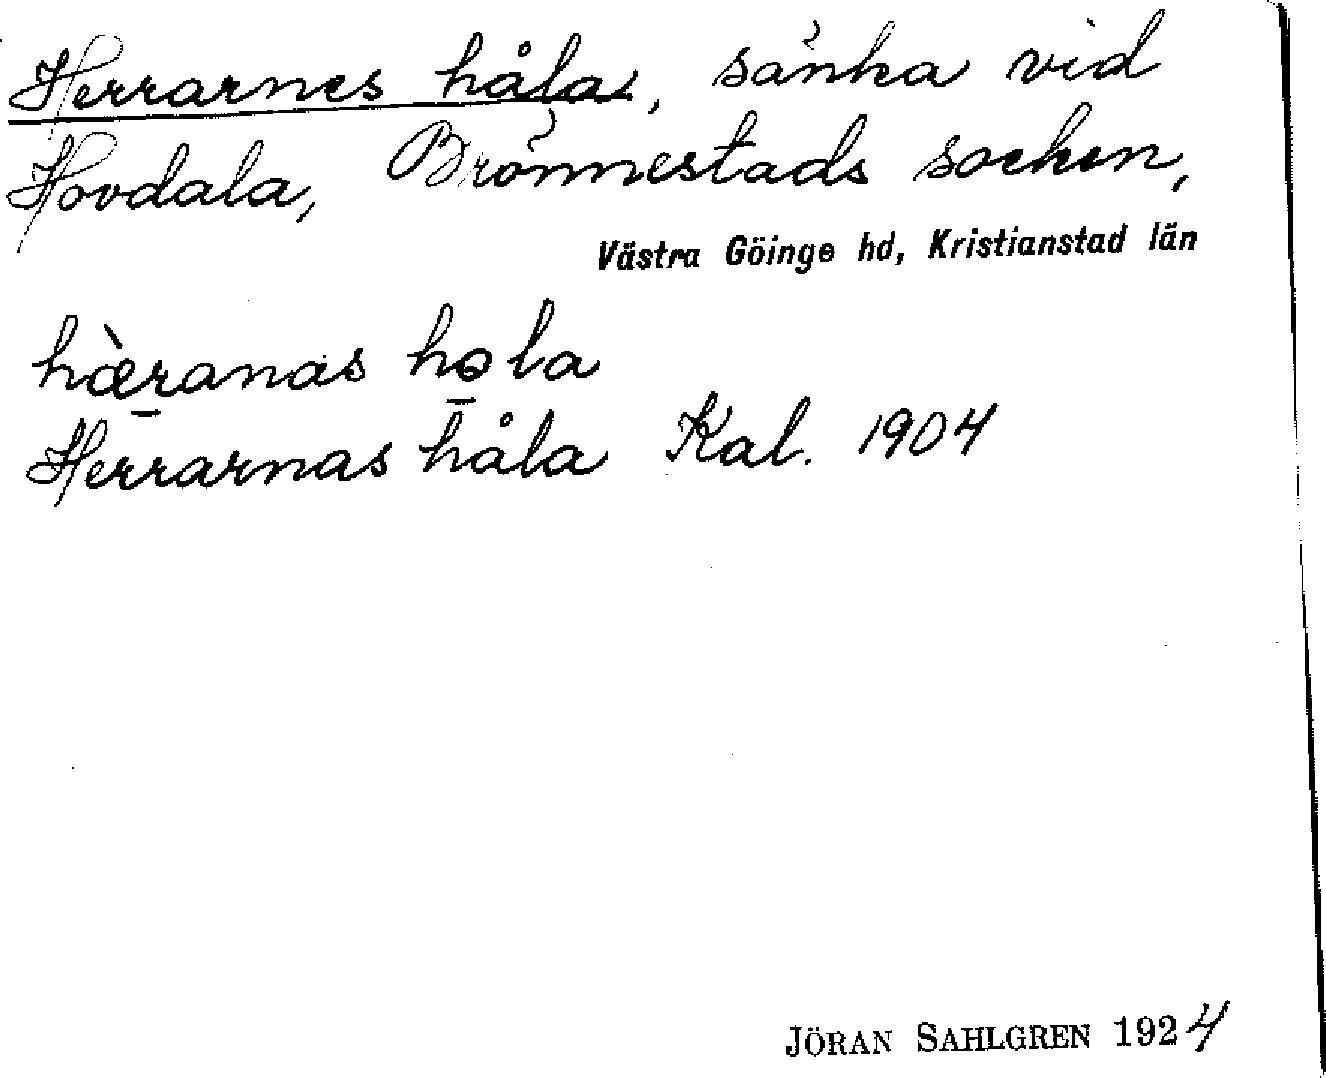 Herrarnes håla, sänka vid
Hovdala, Brönnestads socken,
Västra Göinge hd, Kristianstad län
hæ̀ranas hola
Herrarnas håla Kal. 1904
JÖRAN SAHLGREN 1924